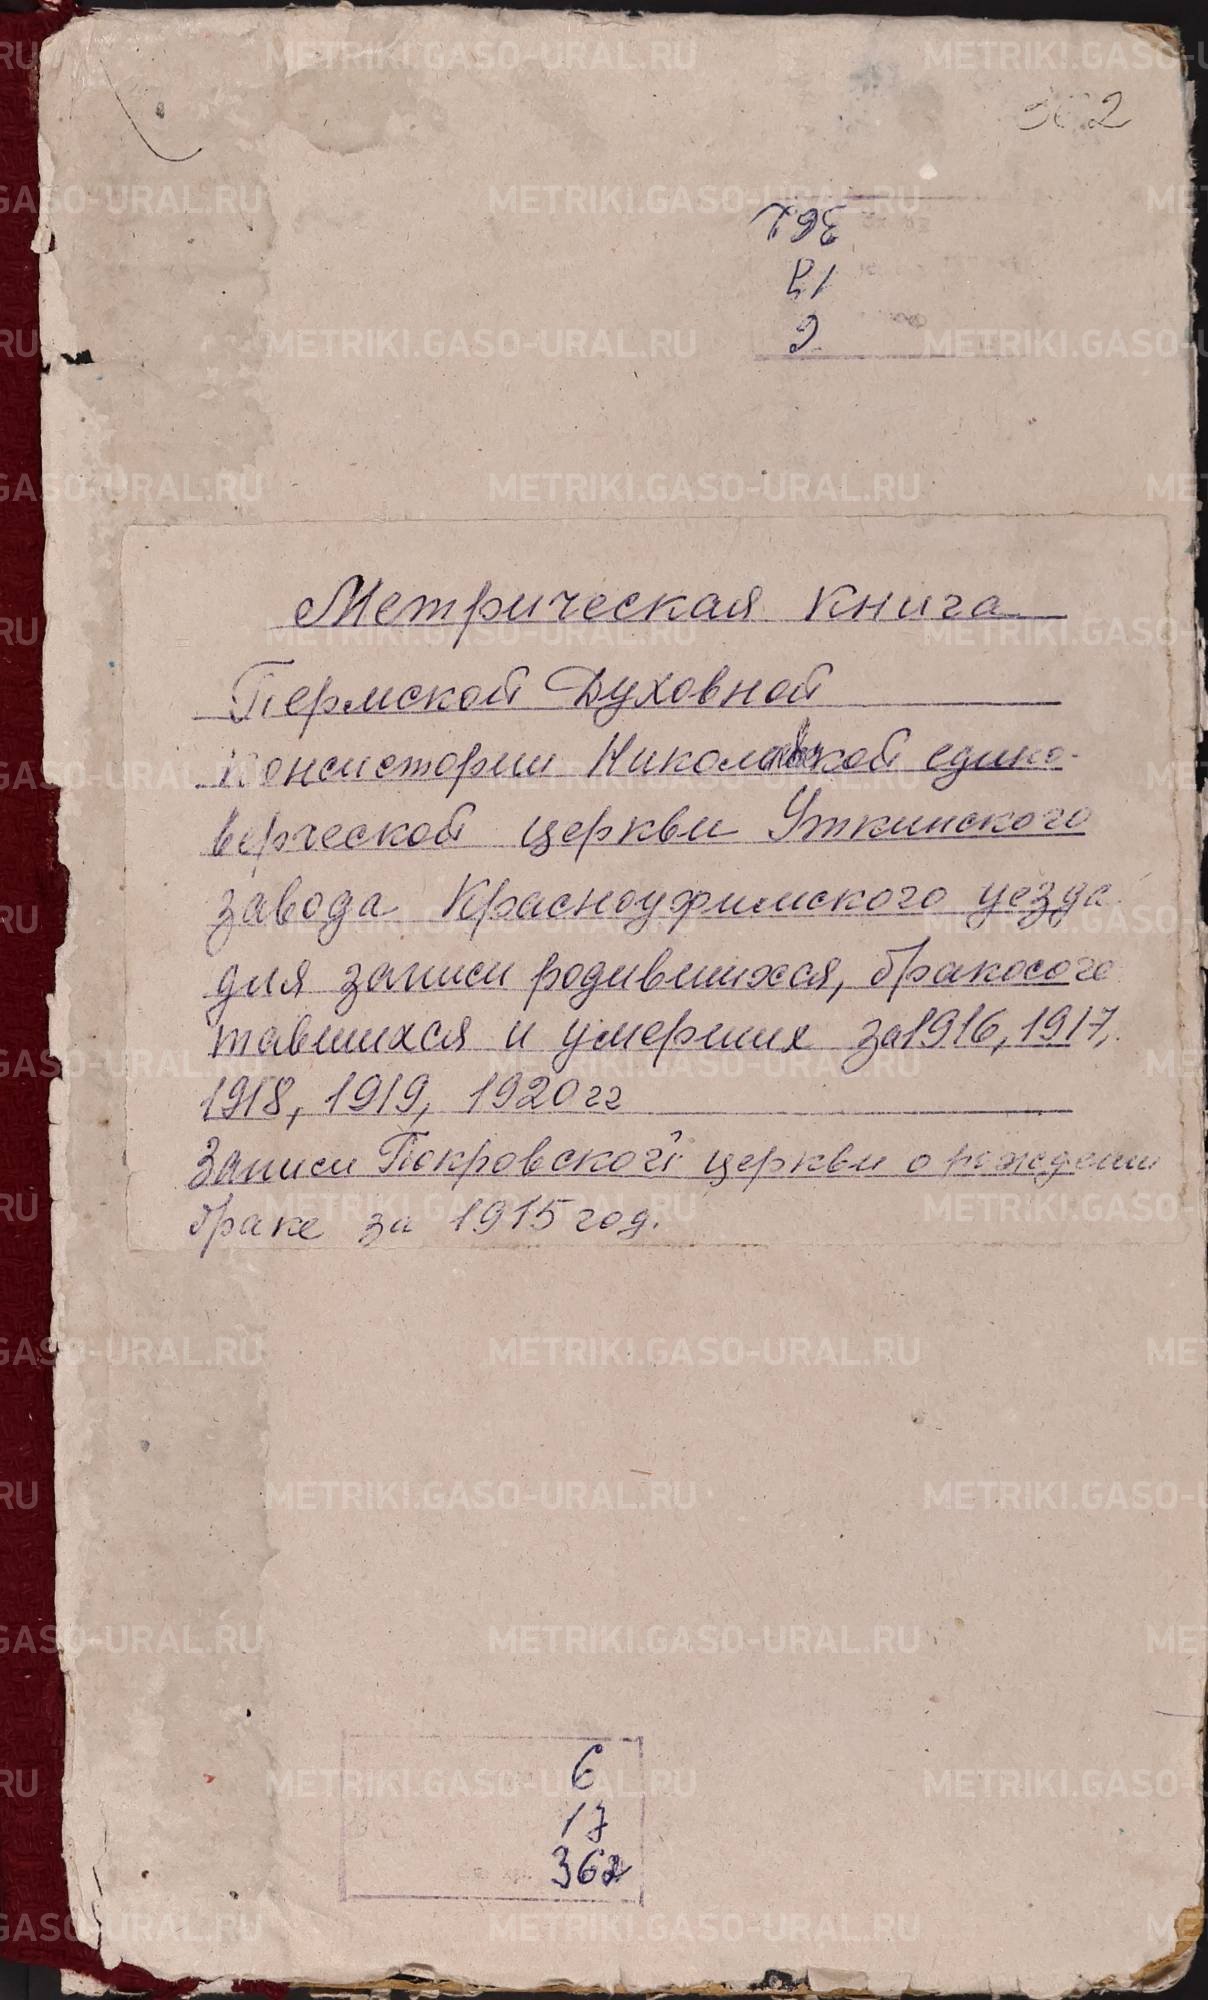 362
362
17
6
Метрическая книга
Пермской Духовной
консистории Николаевской едино-
верческой церкви Уткинского
завода Красноуфимского уезда
для записи родившихся, бракосоче
тавшихся и умерших за 1916, 1917,
1918, 1919, 1920 гг
Записи Покровской церкви о рождении
браке за 1915 год.
6
17
362
METRIKI.GASO-URAL.RU